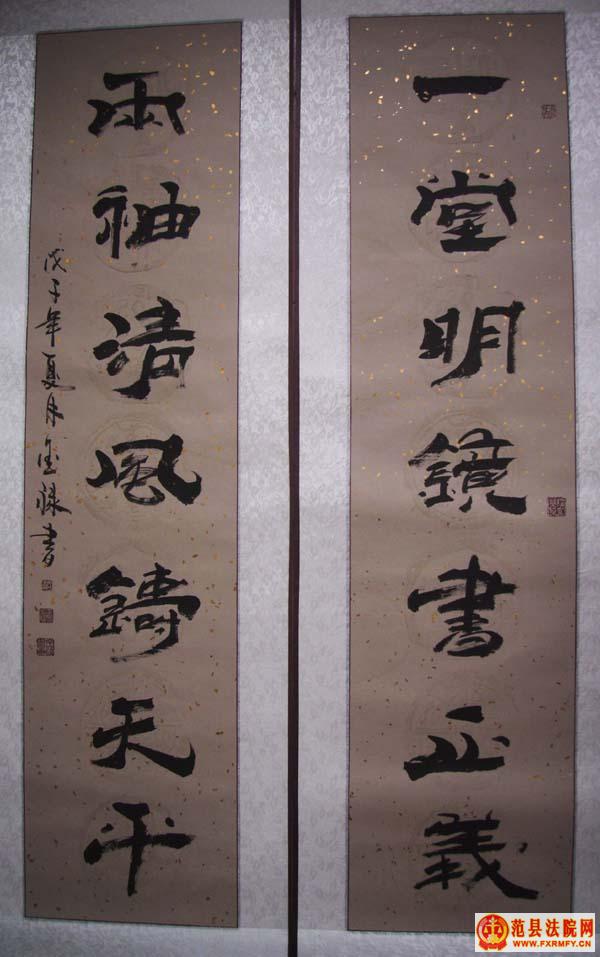 一堂明鏡書正義
兩袖清風鑄天平
戊子年夏月金禄書
范县法院网
WWW.FXRMFY.CN